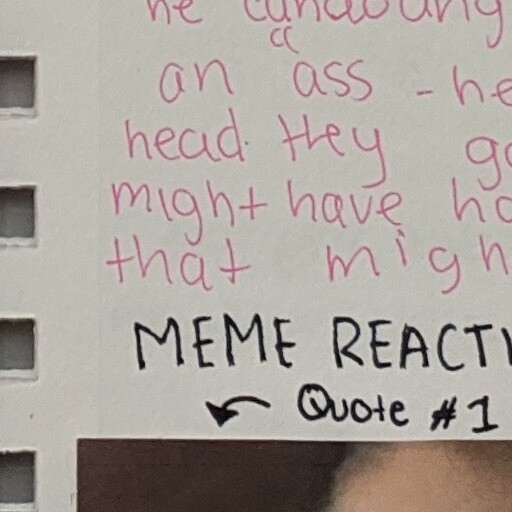 he
an "ass - he
head. they
might have
that migh
MEME REACTI
Quote #1